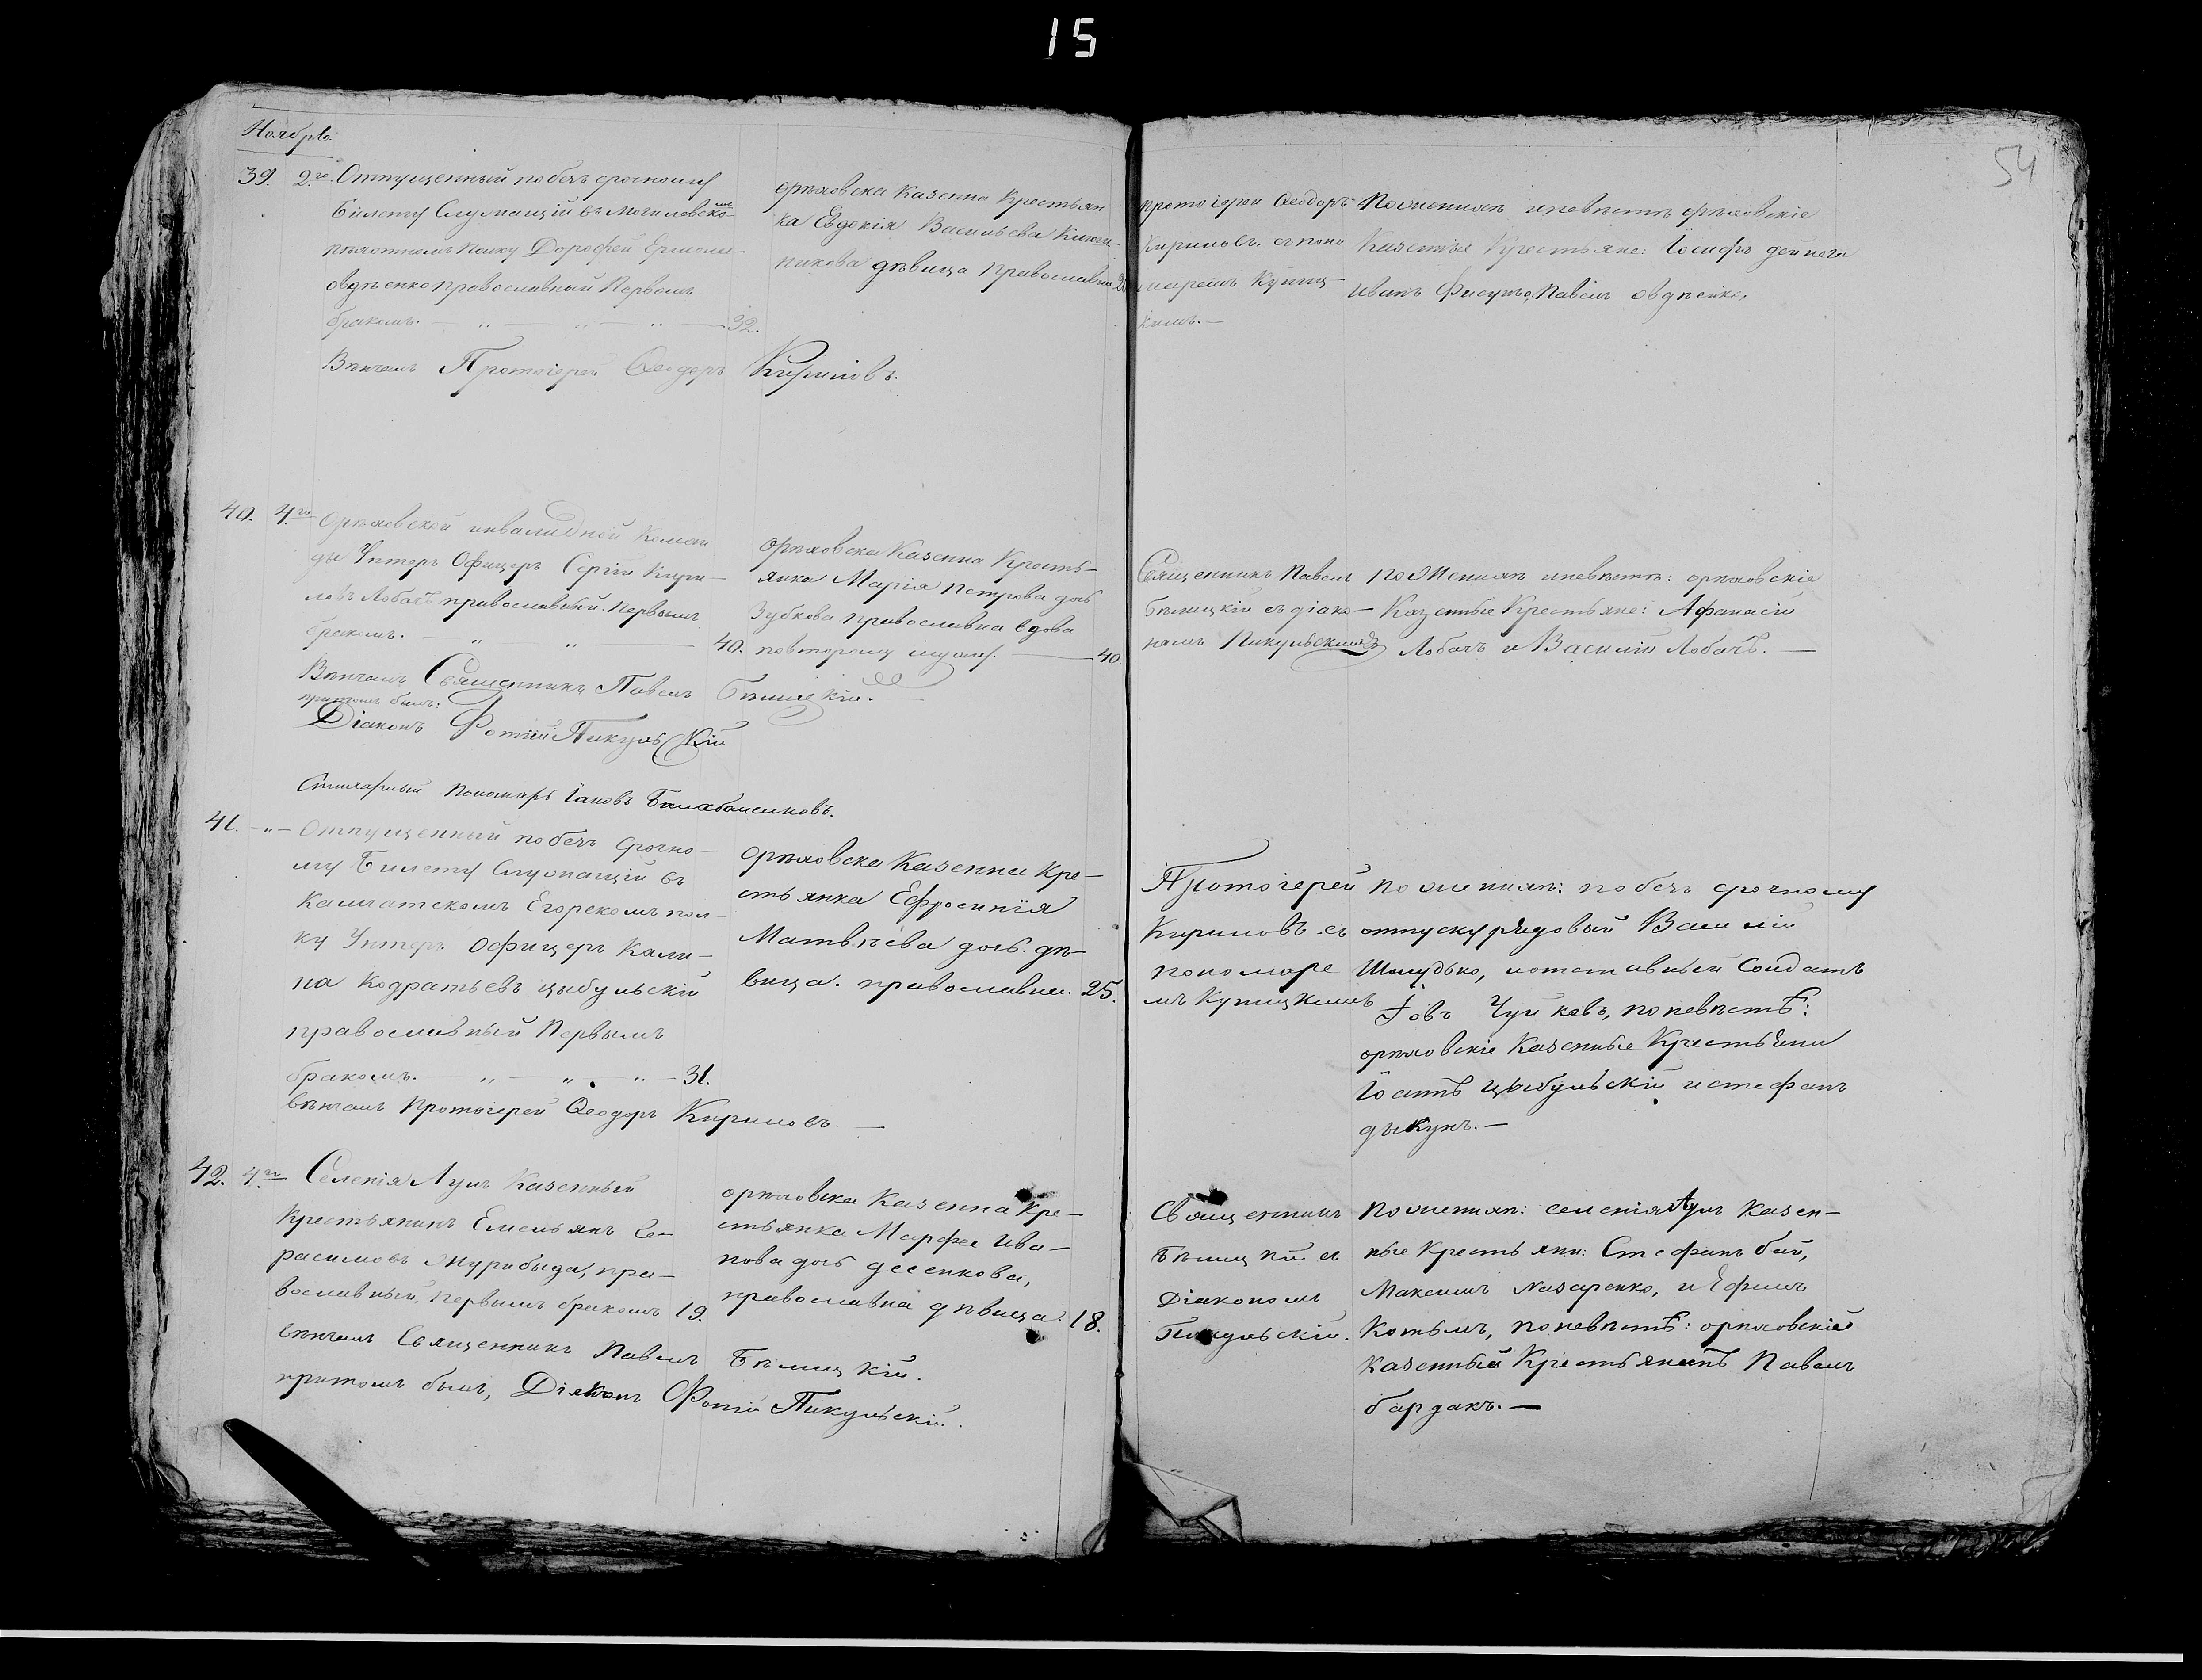 15
54
Ноябрь.
39. 2го Отпущенный по безъ срочному
билету Служащій въ Могилевско-
мъ
пѣхотномъ полку Дорофей
овдѣенко православный Первымъ
бракомъ. — „ — „ — „ — 32.
Вѣнчалъ Протоіерей Ѳеодоръ Кириловъ.
орѣховска Казенна Крестьян
ка Евдокія Васильева
дѣвица православна
протоіерей Ѳеодоръ
Кириловъ. съ поно
маремъ Купиц
кимъ. —
По женихѣ и невѣстѣ орѣховскіе
Казенные Крестьяне: Іосифъ дейнега
Иванъ Фисунъ, Павелъ овдѣенко.
40. 4го орѣховской инвалидной Коман
ды Унтеръ Офицеръ Сергій Кири-
ловъ Лобачъ православный. Первымъ
бракомъ. — „ „ — 40.
Вѣнчалъ Священникъ Павелъ Бѣлицкій.
притомъ былъ:
Діаконъ Фотій Пикульскій
Стихарный Пономарь Іаковъ
орѣховска Казенна Кресть-
янка Марія Петрова дочь
Зубкова православна вдова
повторому мужу. — 40.
Священникъ Павелъ
Бѣлицкій съ діако-
номъ Пикульскимъ
по Женихѣ и невѣстѣ: орѣховскіе
Казенные Крестьяне: Афанасій
Лобачъ и Василій Лобачъ. —
41. — „ — Отпущенный по безъ срочно-
му Билету Служащій въ
Камчатскомъ Егорскомъ пол-
ку Унтеръ Офицеръ Кали-
на Кодратьевъ цыбульскій
православный Первымъ
бракомъ. — „ — „ — „ — 31.
вѣнчалъ Протоіерей Ѳеодоръ Кириловъ. —
орѣховска Казенна Кре-
стьянка Ефросинія
Матвѣева дочь. дѣ-
вица. православна. 25.
Протоіерей
Кириловъ съ
пономаре
мъ Купицкимъ
по женихѣ: по безъ срочному
отпуску рядовый Василій
Шолудько, и отставный Солдатъ
Іовъ Чуйковъ, по невѣстѣ:
орѣховскіе Казенные Крестьяни
Іоаннъ цыбульскій и стефанъ
дыкунъ. —
42. 4го Селенія Гулъ Казенный
Крестьянинъ Емельянъ Ге-
расимовъ Журибыда, пра-
вославный, первымъ бракомъ 19.
вѣнчалъ Священникъ Павелъ Бѣлицкій.
притомъ былъ, Діяконъ Фотій Пикульскій.
орѣховска Казенна Кре-
стьянка Марфа Ива-
нова дочь десенкова,
православна дѣвица. 18.
Священникъ
Бѣлицкій съ
Діакономъ
Пикульскій.
По женихѣ: селенія Казен-
ные Крестьяни: Стефанъ бай,
Максимъ Назаренко, и Ефимъ
по невѣстѣ: орѣховскіе
казенный Крестьянинъ Павелъ
бардакъ. —